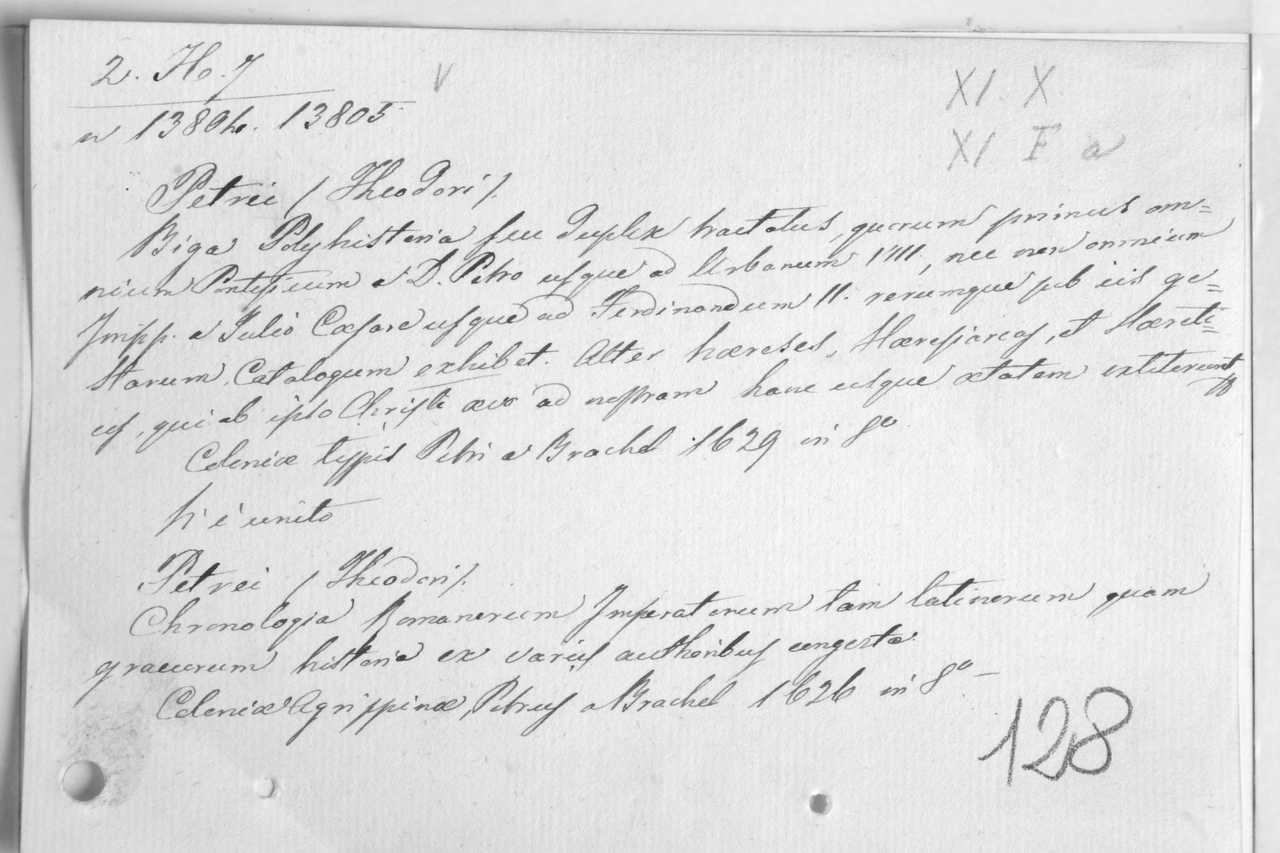 2. Ho. 7
V
XI X
n 13804. 13805
XI F a
Petrei / Theodori /.
Biga Polyhistoria seu duplex tractatus, quorum primus om=
nium Pontificum a D. Petro usque ad Urbanum VIII, nec non omnium
Impp. a Julio Cæsare usque ad Ferdinandum II. rerumque sub iis ge=
starum Catalogum exhibet. Alter hæreses, Hæresiarcas, et Hæreti=
cos, qui ab ipso Christi ævo ad nostram hanc usque ætatem extiterunt
Coloniæ typis Petri a Brachel 1629 in 8o.
Vi è unito
Petrei / Theodori /.
Chronologia Romanorum Imperatorum tam latinorum quam
græcorum historia ex variis authoribus congesta.
Coloniæ Agrippinæ, Petrus a Brachel 1626 in 8o. —
128